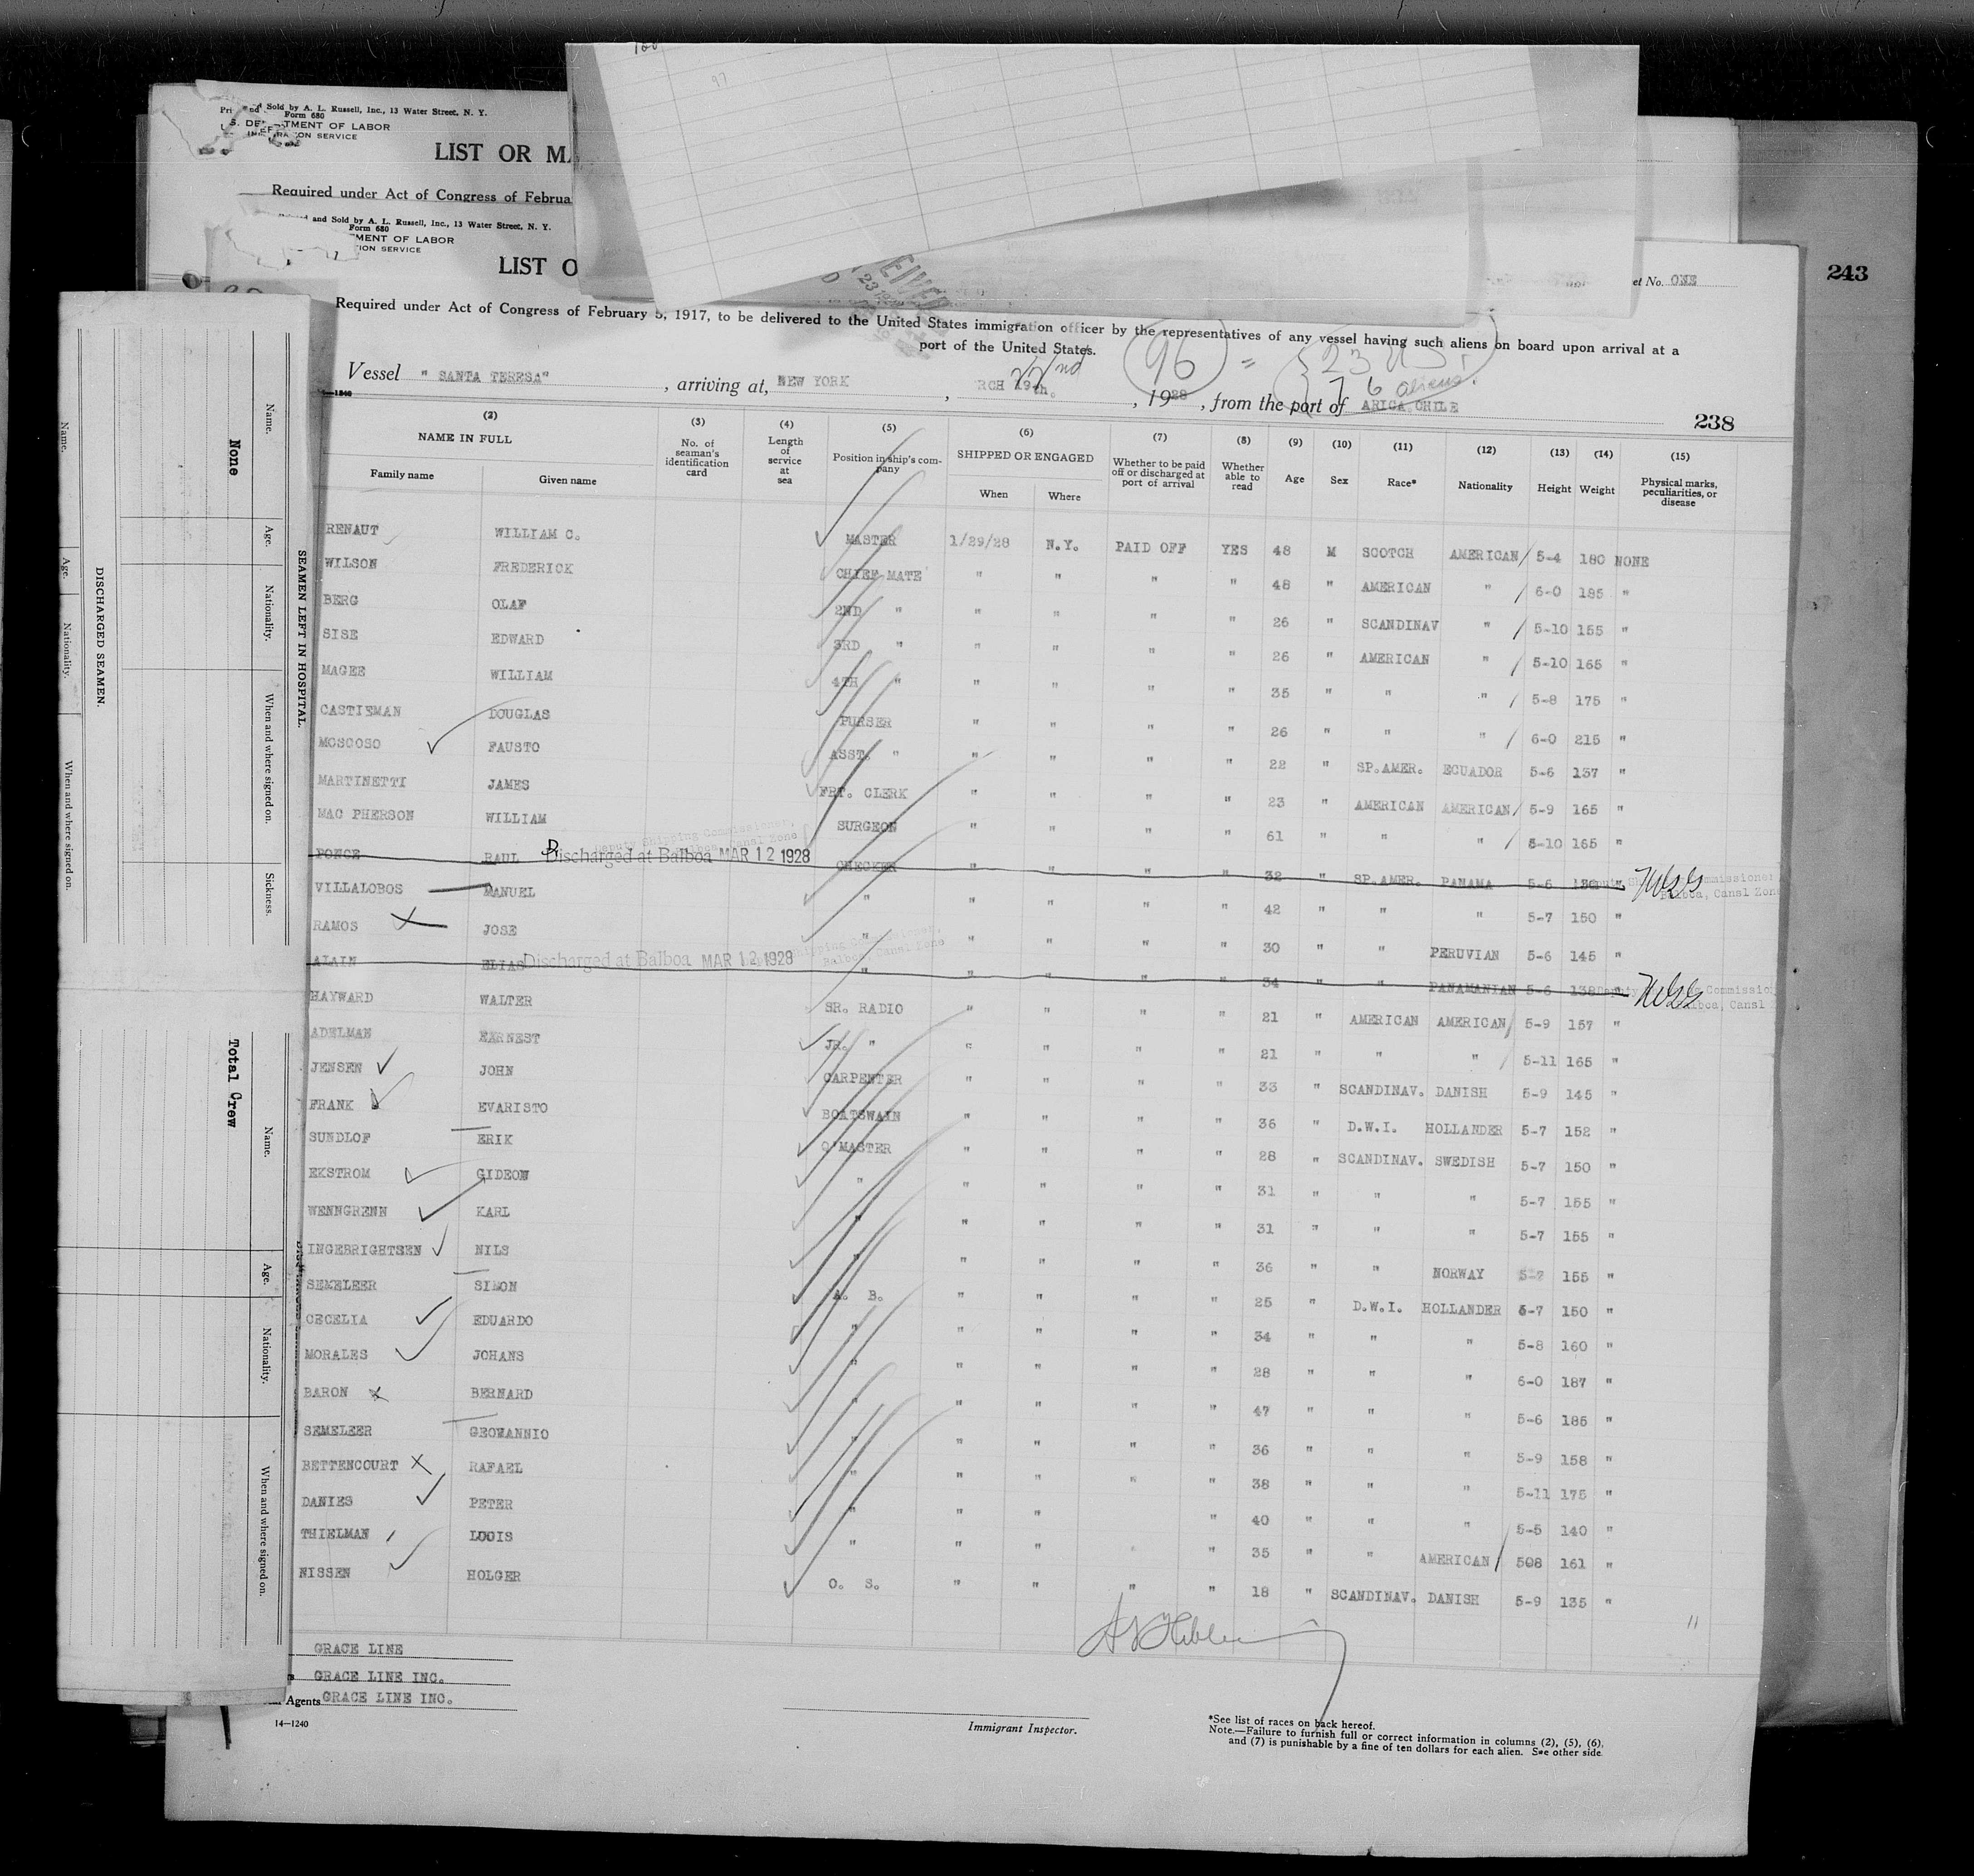 Sold by A. L. Russell, Inc., 13 Water Street, N. Y.
Form 680
TMENT OF LABOR
ON SERVICE
LIST OR MA
Required under Act of Congress of Februa
and Sold by A. L. Russell, Inc., 13 Water Street, N. Y.
Form 680
MENT OF LABOR
TION SERVICE
LIST O
et No. ONE
243
Required under Act of Congress of February 5, 1917, to be delivered to the United States immigration officer by the representatives of any vessel having such aliens on board upon arrival at a
port of the United States.
96 = 23 U S
76 aliens
Vessel " SANTA TERESA" , arriving at, NEW YORK , RCH 19th. 22nd , 1928 , from the port of ARICA CHILE
238
(2) (3) (4) (5) (6) (7) (8) (9) (10) (11) (12) (13) (14) (15)
NAME IN FULL No. of seaman's identification card Length of service at sea Position in ship's company SHIPPED OR ENGAGED Whether to be paid off or discharged at port of arrival Whether able to read Age Sex Race* Nationality Height Weight Physical marks, peculiarities, or disease
Family name Given name When Where
RENAUT WILLIAM C. MASTER 1/29/28 N.Y. PAID OFF YES 48 M SCOTCH AMERICAN 5-4 180 NONE
WILSON FREDERICK CHIEF MATE " " " " 48 " AMERICAN " 6-0 185 "
BERG OLAF 2ND " " " " " 26 " SCANDINAV " 5-10 155 "
SISE EDWARD 3RD " " " " " 26 " AMERICAN " 5-10 165 "
MAGEE WILLIAM 4TH " " " " " 35 " " " 5-8 175 "
CASTIEMAN DOUGLAS PURSER " " " " 26 " " " 6-0 215 "
MOSCOSO FAUSTO ASST. " " " " " 22 " SP.AMER. ECUADOR 5-6 137 "
MARTINETTI JAMES FRT. CLERK " " " " 23 " AMERICAN AMERICAN 5-9 165 "
MAC PHERSON WILLIAM SURGEON " " " " 61 " " " 5-10 165 "
PONCE RAUL Discharged at Balboa MAR 12 1928 CHECKER " " " " 32 " SP.AMER. PANAMA 5-6 130 "
VILLALOBOS MANUEL " " " " " 42 " " " 5-7 150 "
RAMOS JOSE " " " " " 30 " " PERUVIAN 5-6 145 "
ALAIN ELIAS Discharged at Balboa MAR 12 1928 " " " " " 34 " " PANAMANIAN 5-6 138 "
HAYWARD WALTER SR. RADIO " " " " 21 " AMERICAN AMERICAN 5-9 157 "
ADELMAN EARNEST JR. " " " " " 21 " " " 5-11 165 "
JENSEN JOHN CARPENTER " " " " 33 " SCANDINAV. DANISH 5-9 145 "
FRANK EVARISTO BOATSWAIN " " " " 36 " D.W.I. HOLLANDER 5-7 152 "
SUNDLOF ERIK Q'MASTER " " " " 28 " SCANDINAV. SWEDISH 5-7 150 "
EKSTROM GIDEON " " " " " 31 " " " 5-7 155 "
WENNGRENN KARL " " " " " 31 " " " 5-7 155 "
INGEBRIGHTSEN NILS " " " " " 36 " " NORWAY 5-7 155 "
SEMELEER SIMON A. B. " " " " 25 " D.W.I. HOLLANDER 5-7 150 "
CECELIA EDUARDO " " " " " 34 " " " 5-8 160 "
MORALES JOHANS " " " " " 28 " " " 6-0 187 "
BARON BERNARD " " " " " 47 " " " 5-6 185 "
SEMELEER GEOWANNIO " " " " " 36 " " " 5-9 158 "
BETTENCOURT RAFAEL " " " " " 38 " " " 5-11 175 "
DANIES PETER " " " " 40 " " " 5-5 140 "
THIELMAN LOUIS " " " " " 35 " " AMERICAN 508 161 "
NISSEN HOLGER O. S. " " " " 18 " SCANDINAV. DANISH 5-9 135 "
GRACE LINE
GRACE LINE INC.
Agents GRACE LINE INC.
14—1240
Immigrant Inspector.
*See list of races on back hereof.
Note.—Failure to furnish full or correct information in columns (2), (5), (6),
and (7) is punishable by a fine of ten dollars for each alien. See other side.
SEAMEN LEFT IN HOSPITAL.
Name. Age. Nationality. When and where signed on. Sickness.
None
DISCHARGED SEAMEN.
Name. Age. Nationality. When and where signed on.
Total Crew
Name. Age. Nationality. When and where signed on.